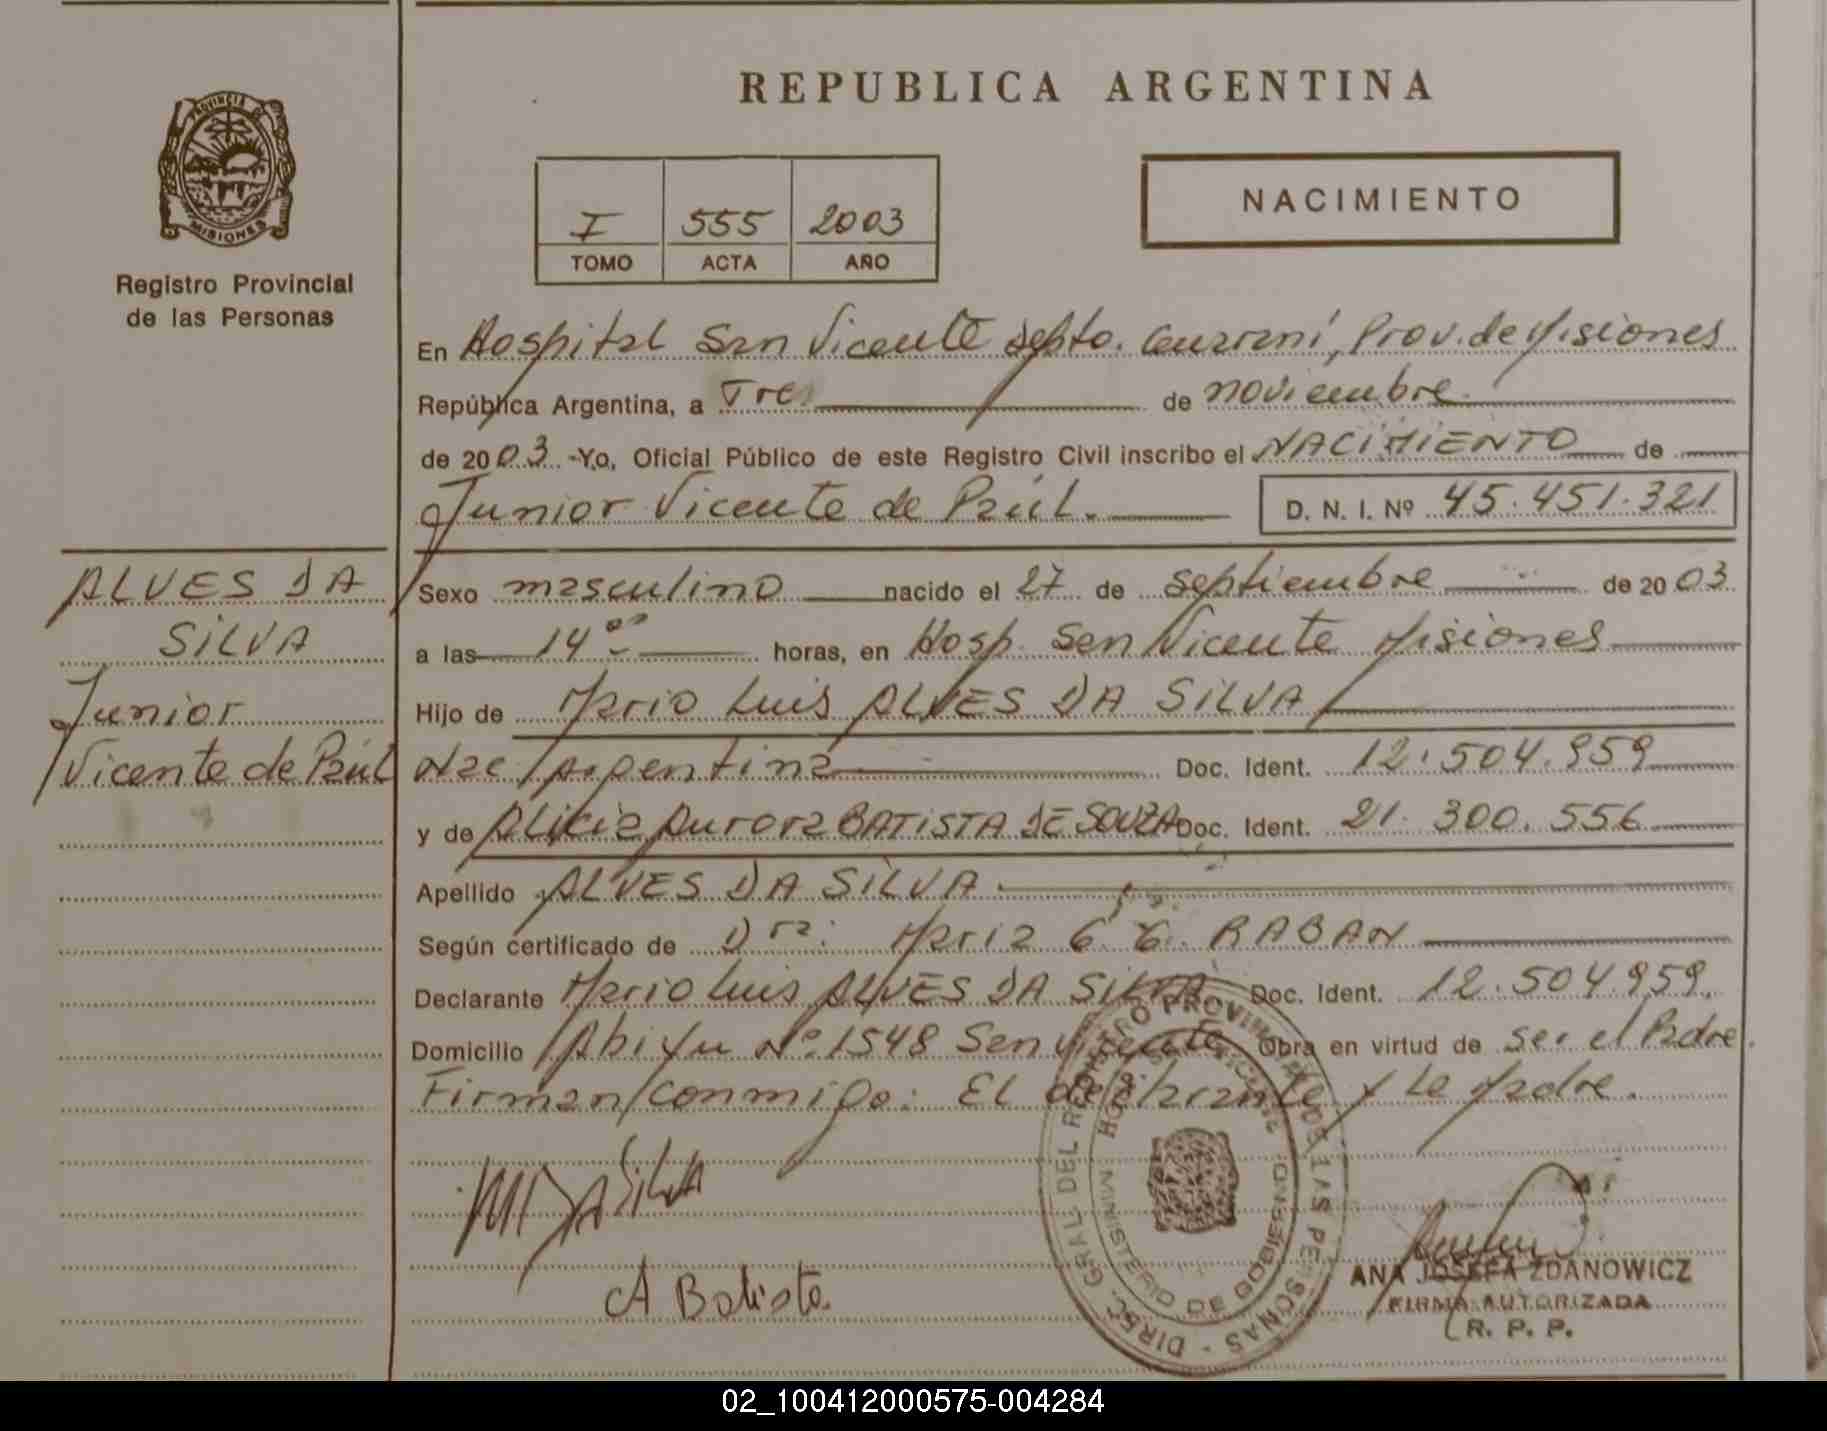 REPUBLICA ARGENTINA
PROVINCIA DE
MISIONES
Registro Provincial
de las Personas
I 555 2003
TOMO ACTA AÑO
NACIMIENTO
En Hospital San Vicente Depto. Guaraní, Prov. de Misiones
República Argentina, a Tres de noviembre
de 2003 - Yo, Oficial Público de este Registro Civil inscribo el NACIMIENTO de
Junior Vicente de Paúl. D. N. I. Nº 45.451.321
ALVES DA
SILVA
Junior
Vicente de Paúl
Sexo masculino nacido el 27 de septiembre de 2003
a las 14 00 horas, en Hosp. San Vicente Misiones
Hijo de Mario Luis ALVES DA SILVA
Nac Argentina Doc. Ident. 12.504.959
y de Alicia Aurora BATISTA DE SOUZA Doc. Ident. 21.300.556
Apellido ALVES DA SILVA
Según certificado de Dra: Maria G. G. RABAN
Declarante Mario Luis ALVES DA SILVA Doc. Ident. 12.504.959.
Domicilio Abiyu Nº 1548 San Vicente Obra en virtud de ser el Padre.
Firman conmigo: El declarante y La Madre.
M DA Silva
A Batista.
DIREC. GRAL. DEL REGISTRO PROVINCIAL DE LAS PERSONAS
MINISTERIO DE GOBIERNO
ANA JOSEFA ZDANOWICZ
FIRMA AUTORIZADA
R. P. P.
02_100412000575-004284